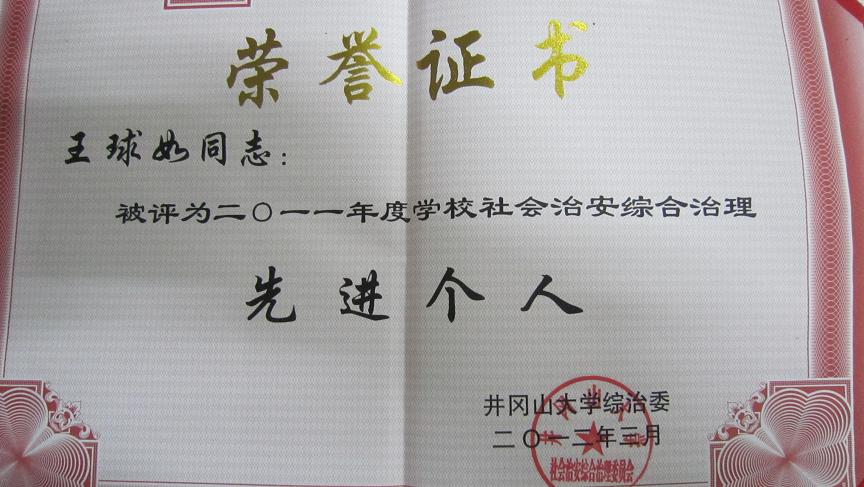 荣誉证书
王球如同志：
被评为二〇一一年度学校社会治安综合治理
先进个人
井冈山大学综治委
二〇一二年三月
社会治安综合治理委员会